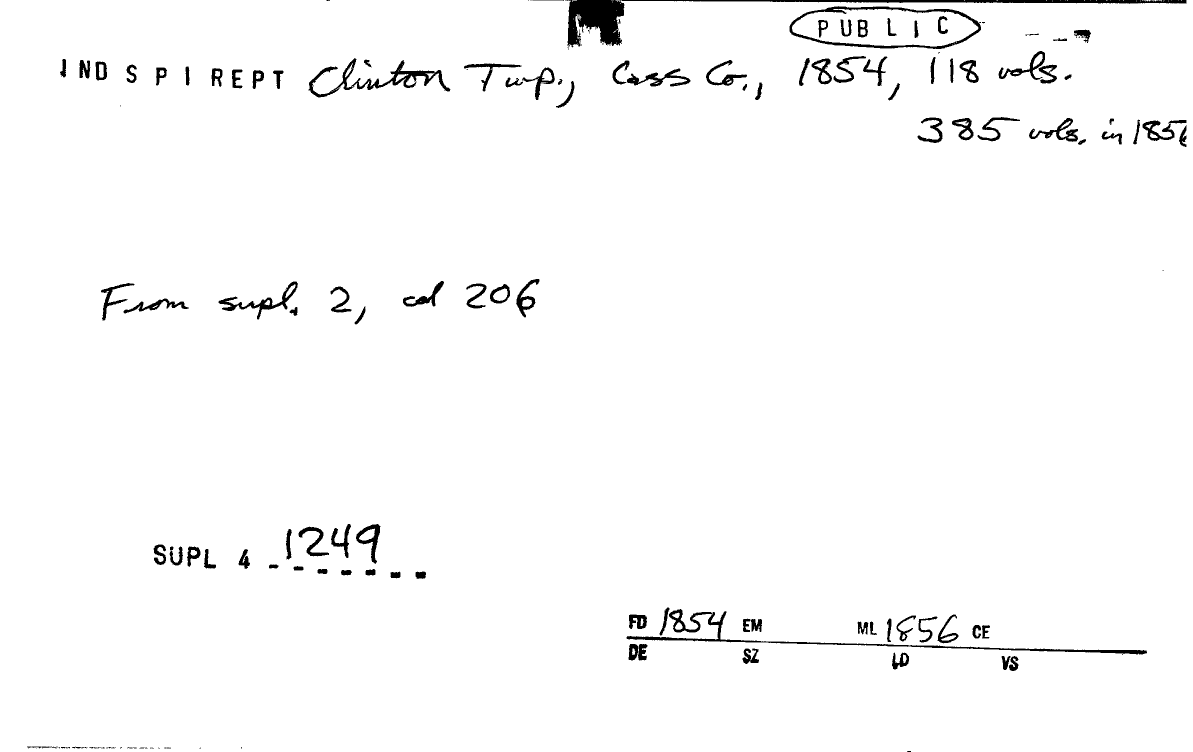 PUBLIC
IND SPI REPT Clinton Twp., Cass Co., 1854, 118 vols.
385 vols. in 1856
From supl. 2, col 206
SUPL 4 1249
FD 1854 EM ML 1856 CE
DE SZ LD VS